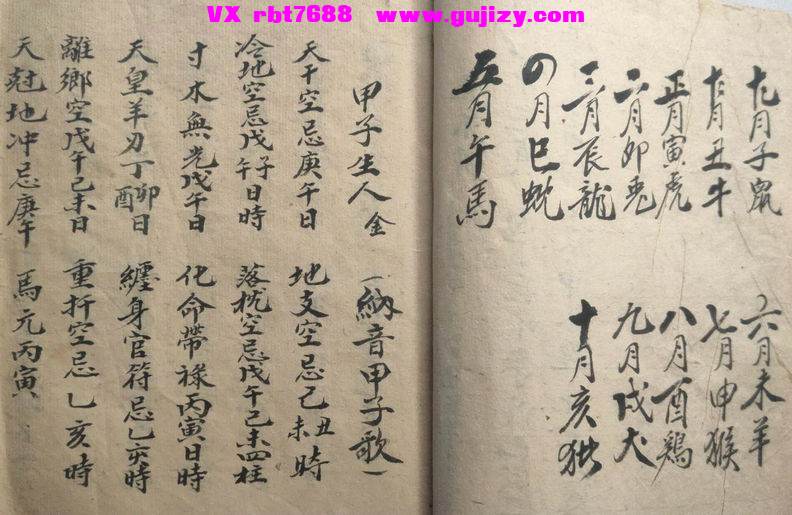 VX rbt7688 www.gujizy.com
十一月子鼠
十二月丑牛
正月寅虎
二月卯兎
三月辰龍
四月巳蛇
五月午馬
六月未羊
七月申猴
八月酉鷄
九月戌犬
十月亥猪
甲子生人 金 (納音甲子歌)
天干空忌庚午日 地支空忌己丑未時
冷地空忌戊子午日時 落枕空忌戊午己未四柱
寸木無光戊午日 化命帶祿丙寅日時
天皇羊刃丁卯酉日 纏身官符忌乙亥時
離鄉空戊午己未日 重扦空忌乙亥時
天尅地冲忌庚午 馬元丙寅